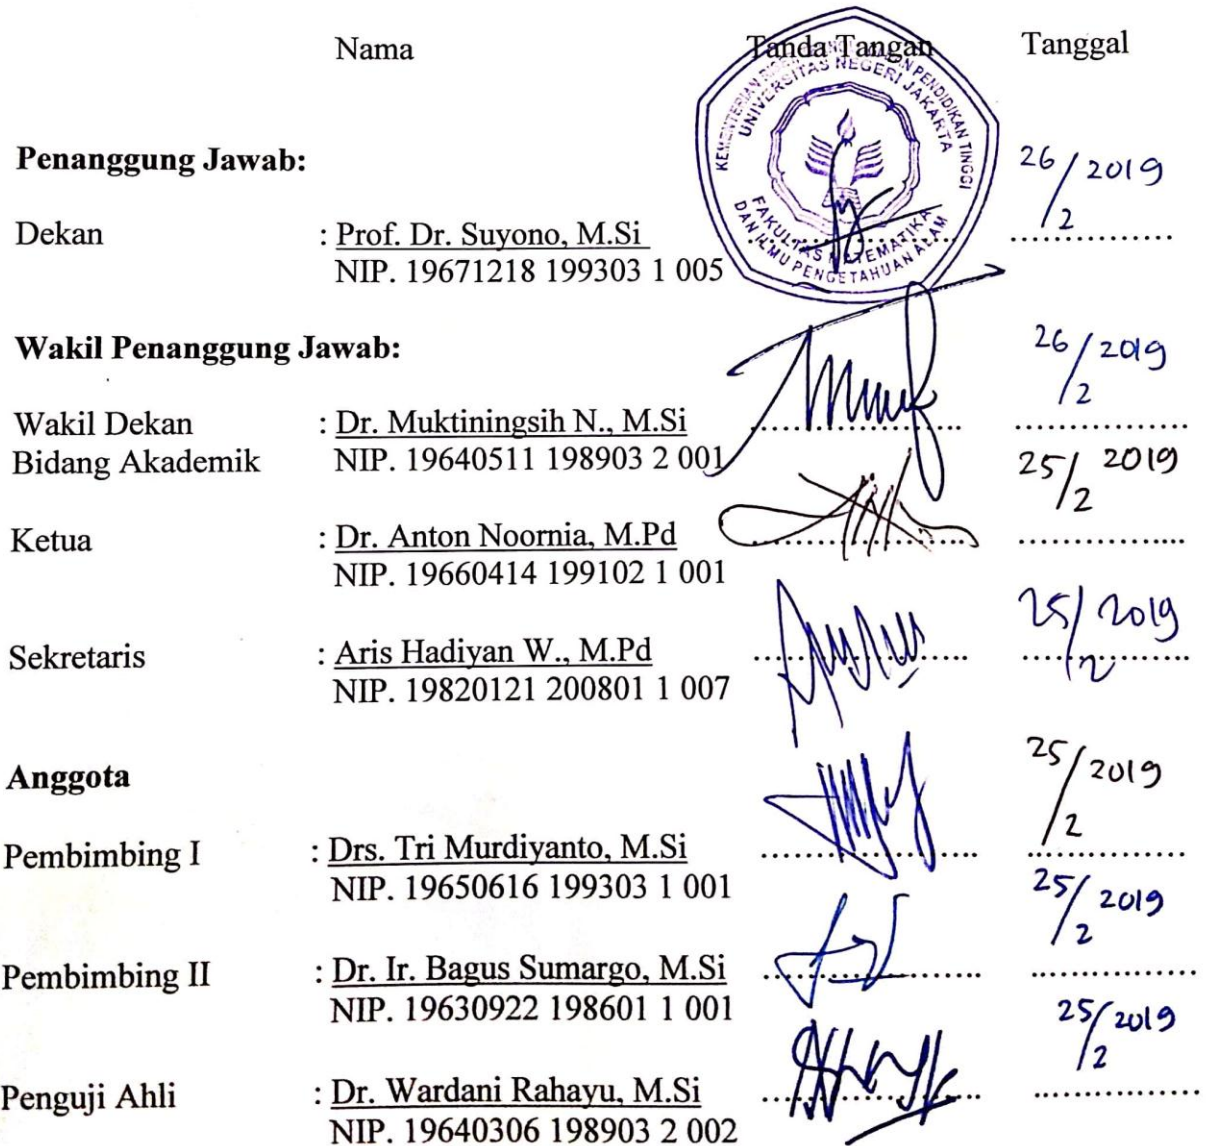 Nama Tanda Tangan Tanggal
KEMENTERIAN PENDIDIKAN TINGGI
UNIVERSITAS NEGERI JAKARTA
FAKULTAS MATEMATIKA
DAN ILMU PENGETAHUAN ALAM
Penanggung Jawab:
26/2 2019
Dekan : Prof. Dr. Suyono, M.Si ....................
NIP. 19671218 199303 1 005
Wakil Penanggung Jawab:
26/2 2019
Wakil Dekan : Dr. Muktiningsih N., M.Si ....................
Bidang Akademik NIP. 19640511 198903 2 001
25/2 2019
Ketua : Dr. Anton Noornia, M.Pd ....................
NIP. 19660414 199102 1 001
25/2 2019
Sekretaris : Aris Hadiyan W., M.Pd ....................
NIP. 19820121 200801 1 007
Anggota
25/2 2019
Pembimbing I : Drs. Tri Murdiyanto, M.Si ....................
NIP. 19650616 199303 1 001
25/2 2019
Pembimbing II : Dr. Ir. Bagus Sumargo, M.Si ....................
NIP. 19630922 198601 1 001
25/2 2019
Penguji Ahli : Dr. Wardani Rahayu, M.Si ....................
NIP. 19640306 198903 2 002